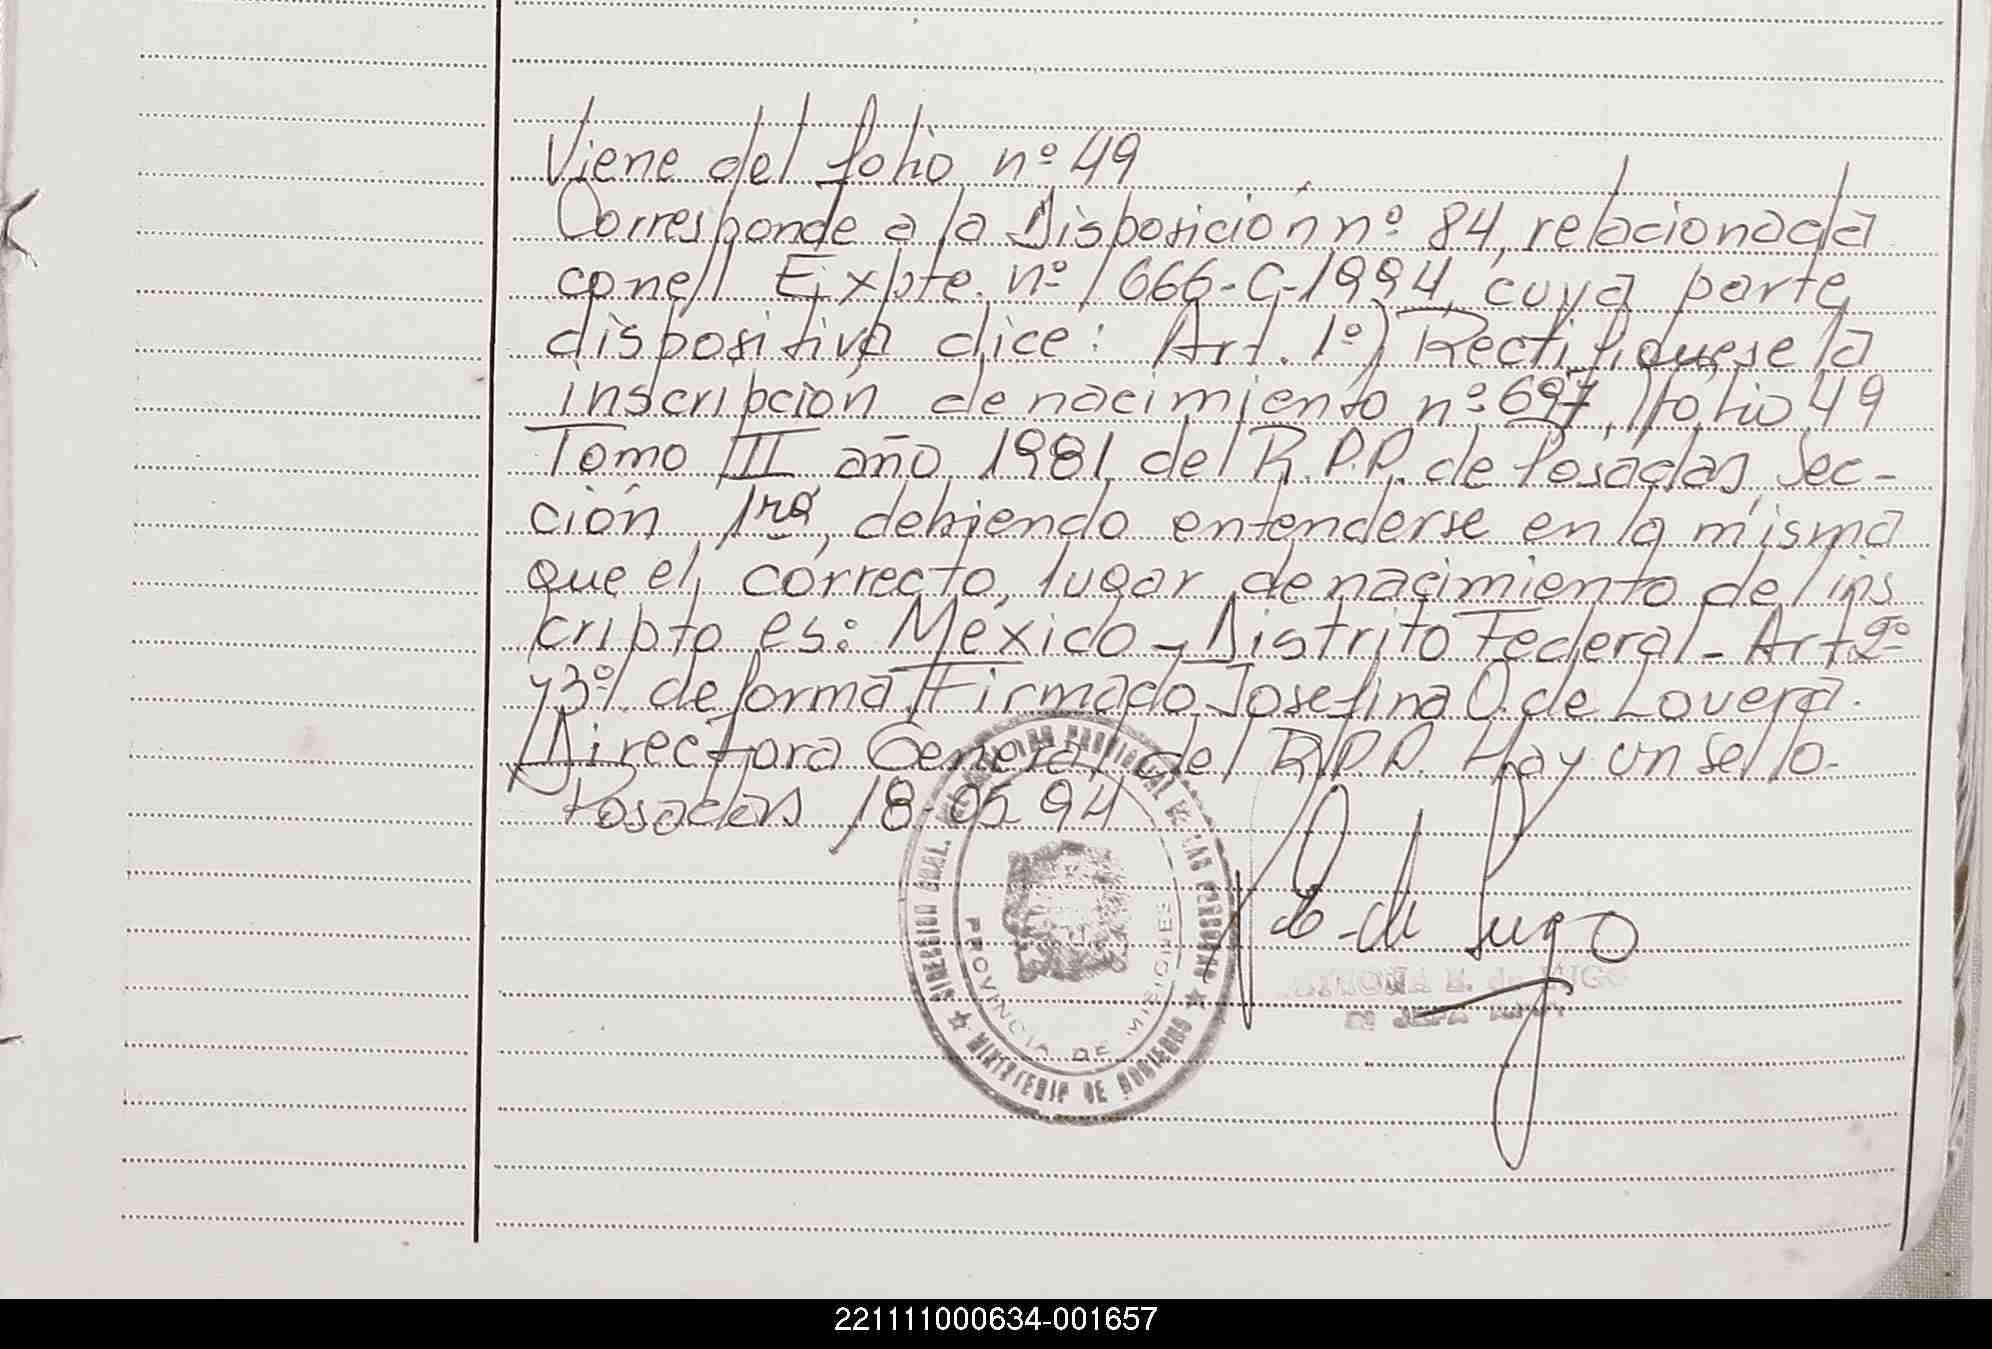 Viene del folio nº 49
Corresponde a la Disposición nº 84, relacionada
con el Expte. nº 1666-C-1994, cuya parte
dispositiva dice: Art. 1º) Rectifíquese la
inscripción de nacimiento nº 697, folio 49
Tomo III año 1981 del R.P.P. de Posadas, Sec-
ción 1ra, debiendo entenderse en la misma
que el correcto, lugar de nacimiento del ins
cripto es: México - Distrito Federal - Art 2º
y 3º de forma Firmado Josefina O. de Lovera.
Directora General del R.P.P. Hay un sello.
Posadas 18-05-94
DIRECCION GRAL. DEL REGISTRO PROVINCIAL DE LAS PERSONAS
PROVINCIA DE MISIONES
MINISTERIO DE GOBIERNO
de Lugo
de LUGO
JEFA
221111000634-001657